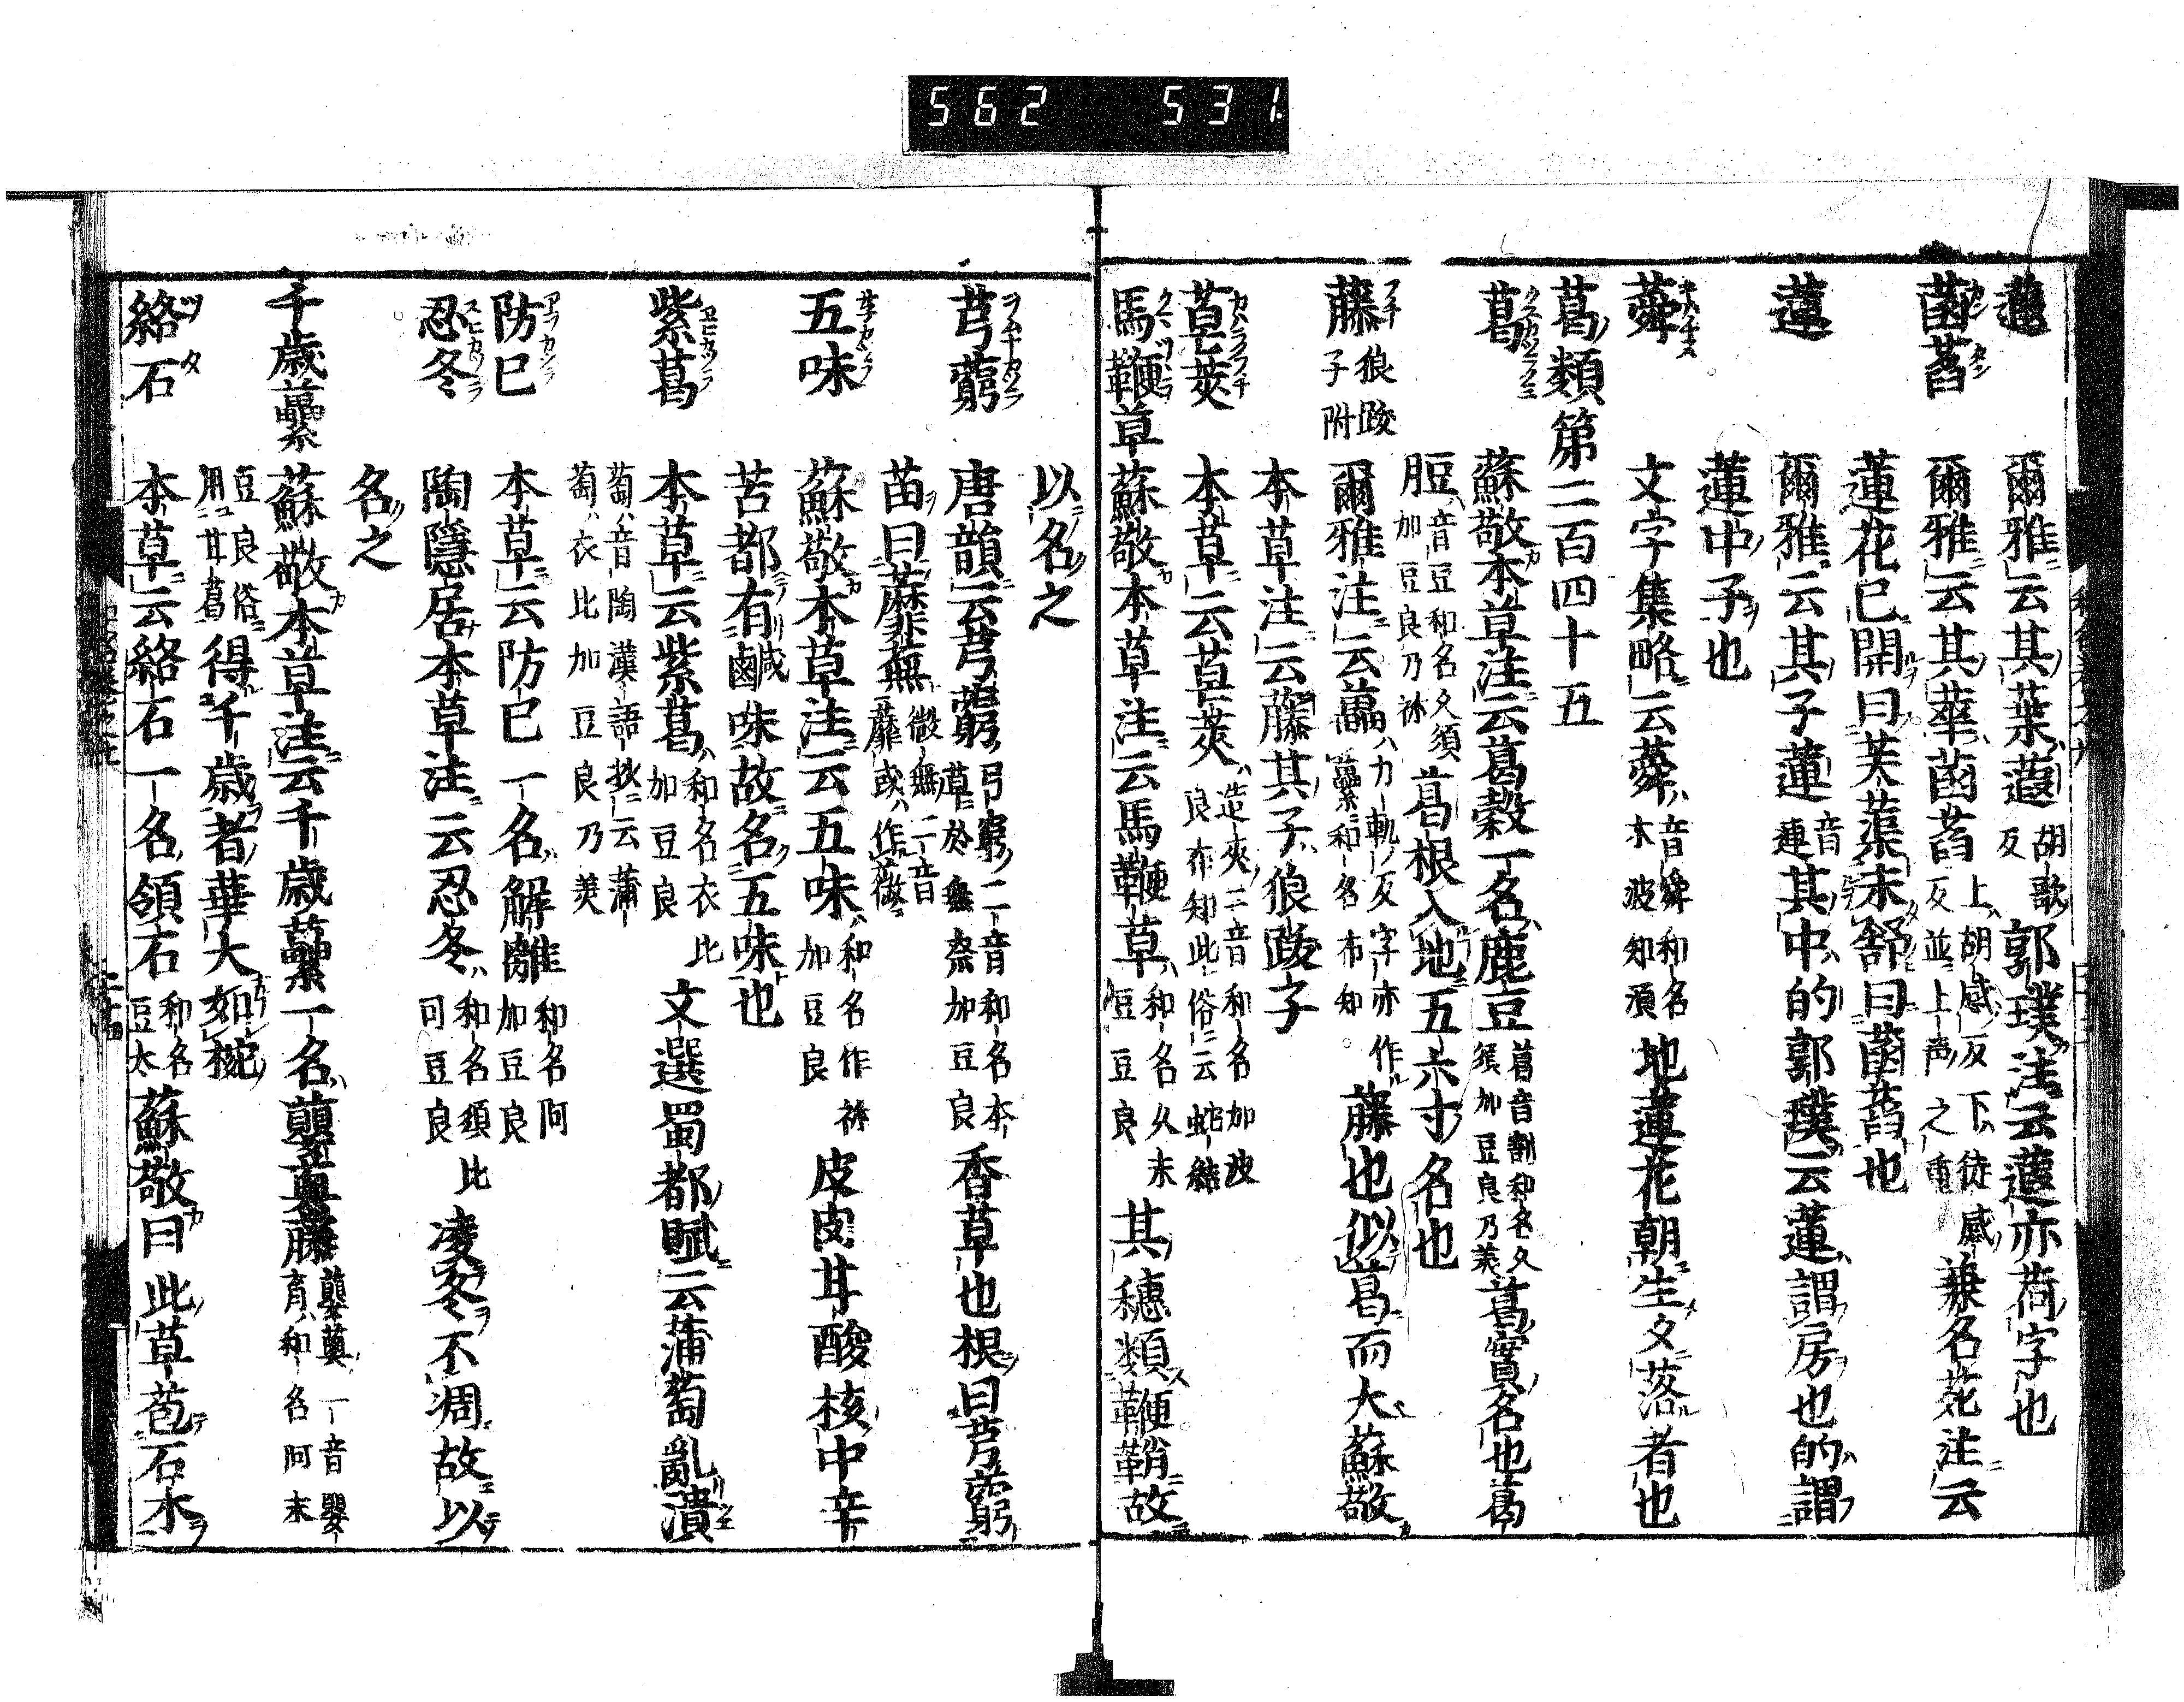 562 531
蕸 爾雅云其葉蕸胡歌反郭璞注云蕸亦荷字也
菡萏 爾雅云其華菡萏上胡感反下徒感反並上声之重兼名苑注云
蓮花已開曰芙蕖未舒曰菡萏也
蓮 爾雅云其子蓮音連其中的郭璞云蓮謂房也的謂
蓮中子也
蕣 文字集略云蕣音舜和名木波知須地蓮花朝生夕落者也
葛類第二百四十五
葛 蘇敬本草注云葛穀一名鹿豆葛音割和名久須加豆良乃美葛實名也葛
脰音豆和名久須加豆良乃祢葛根入地五六寸名也
藤狼跋子附 爾雅注云藟力軌反字亦作虆和名布知藤也似葛而大蘇敬
本草注云藤其子狼跋子
草莢 本草云草莢造夾二音和名加波良布知此俗云蛇結
馬鞭草 蘇敬本草注云馬鞭草和名久末豆豆良其穗類鞭鞘故
以名之
芎藭 唐韻云芎藭弓窮二音和名本草於無奈加豆良香草也根曰芎藭
苗曰蘼蕪微無二音蘼或作薇
五味 蘇敬本草注云五味和名作祢加豆良皮肉甘酸核中辛
苦都有鹹味故名五味也
紫葛 本草云紫葛和名衣比加豆良文選蜀都賦云蒲萄亂潰
萄音陶漢語抄云蒲萄衣比加豆良乃美
防已 本草云防已一名解離和名阿加豆良
忍冬 陶隱居本草注云忍冬和名須比可豆良凌冬不凋故以
名之
千歳虆 蘇敬本草注云千歳虆一名蘡薁藤蘡薁一音嬰育和名阿末
豆良俗用甘葛得千歳者華大如椀
絡石 本草云絡石一名領石和名豆太蘇敬曰此草苞石木